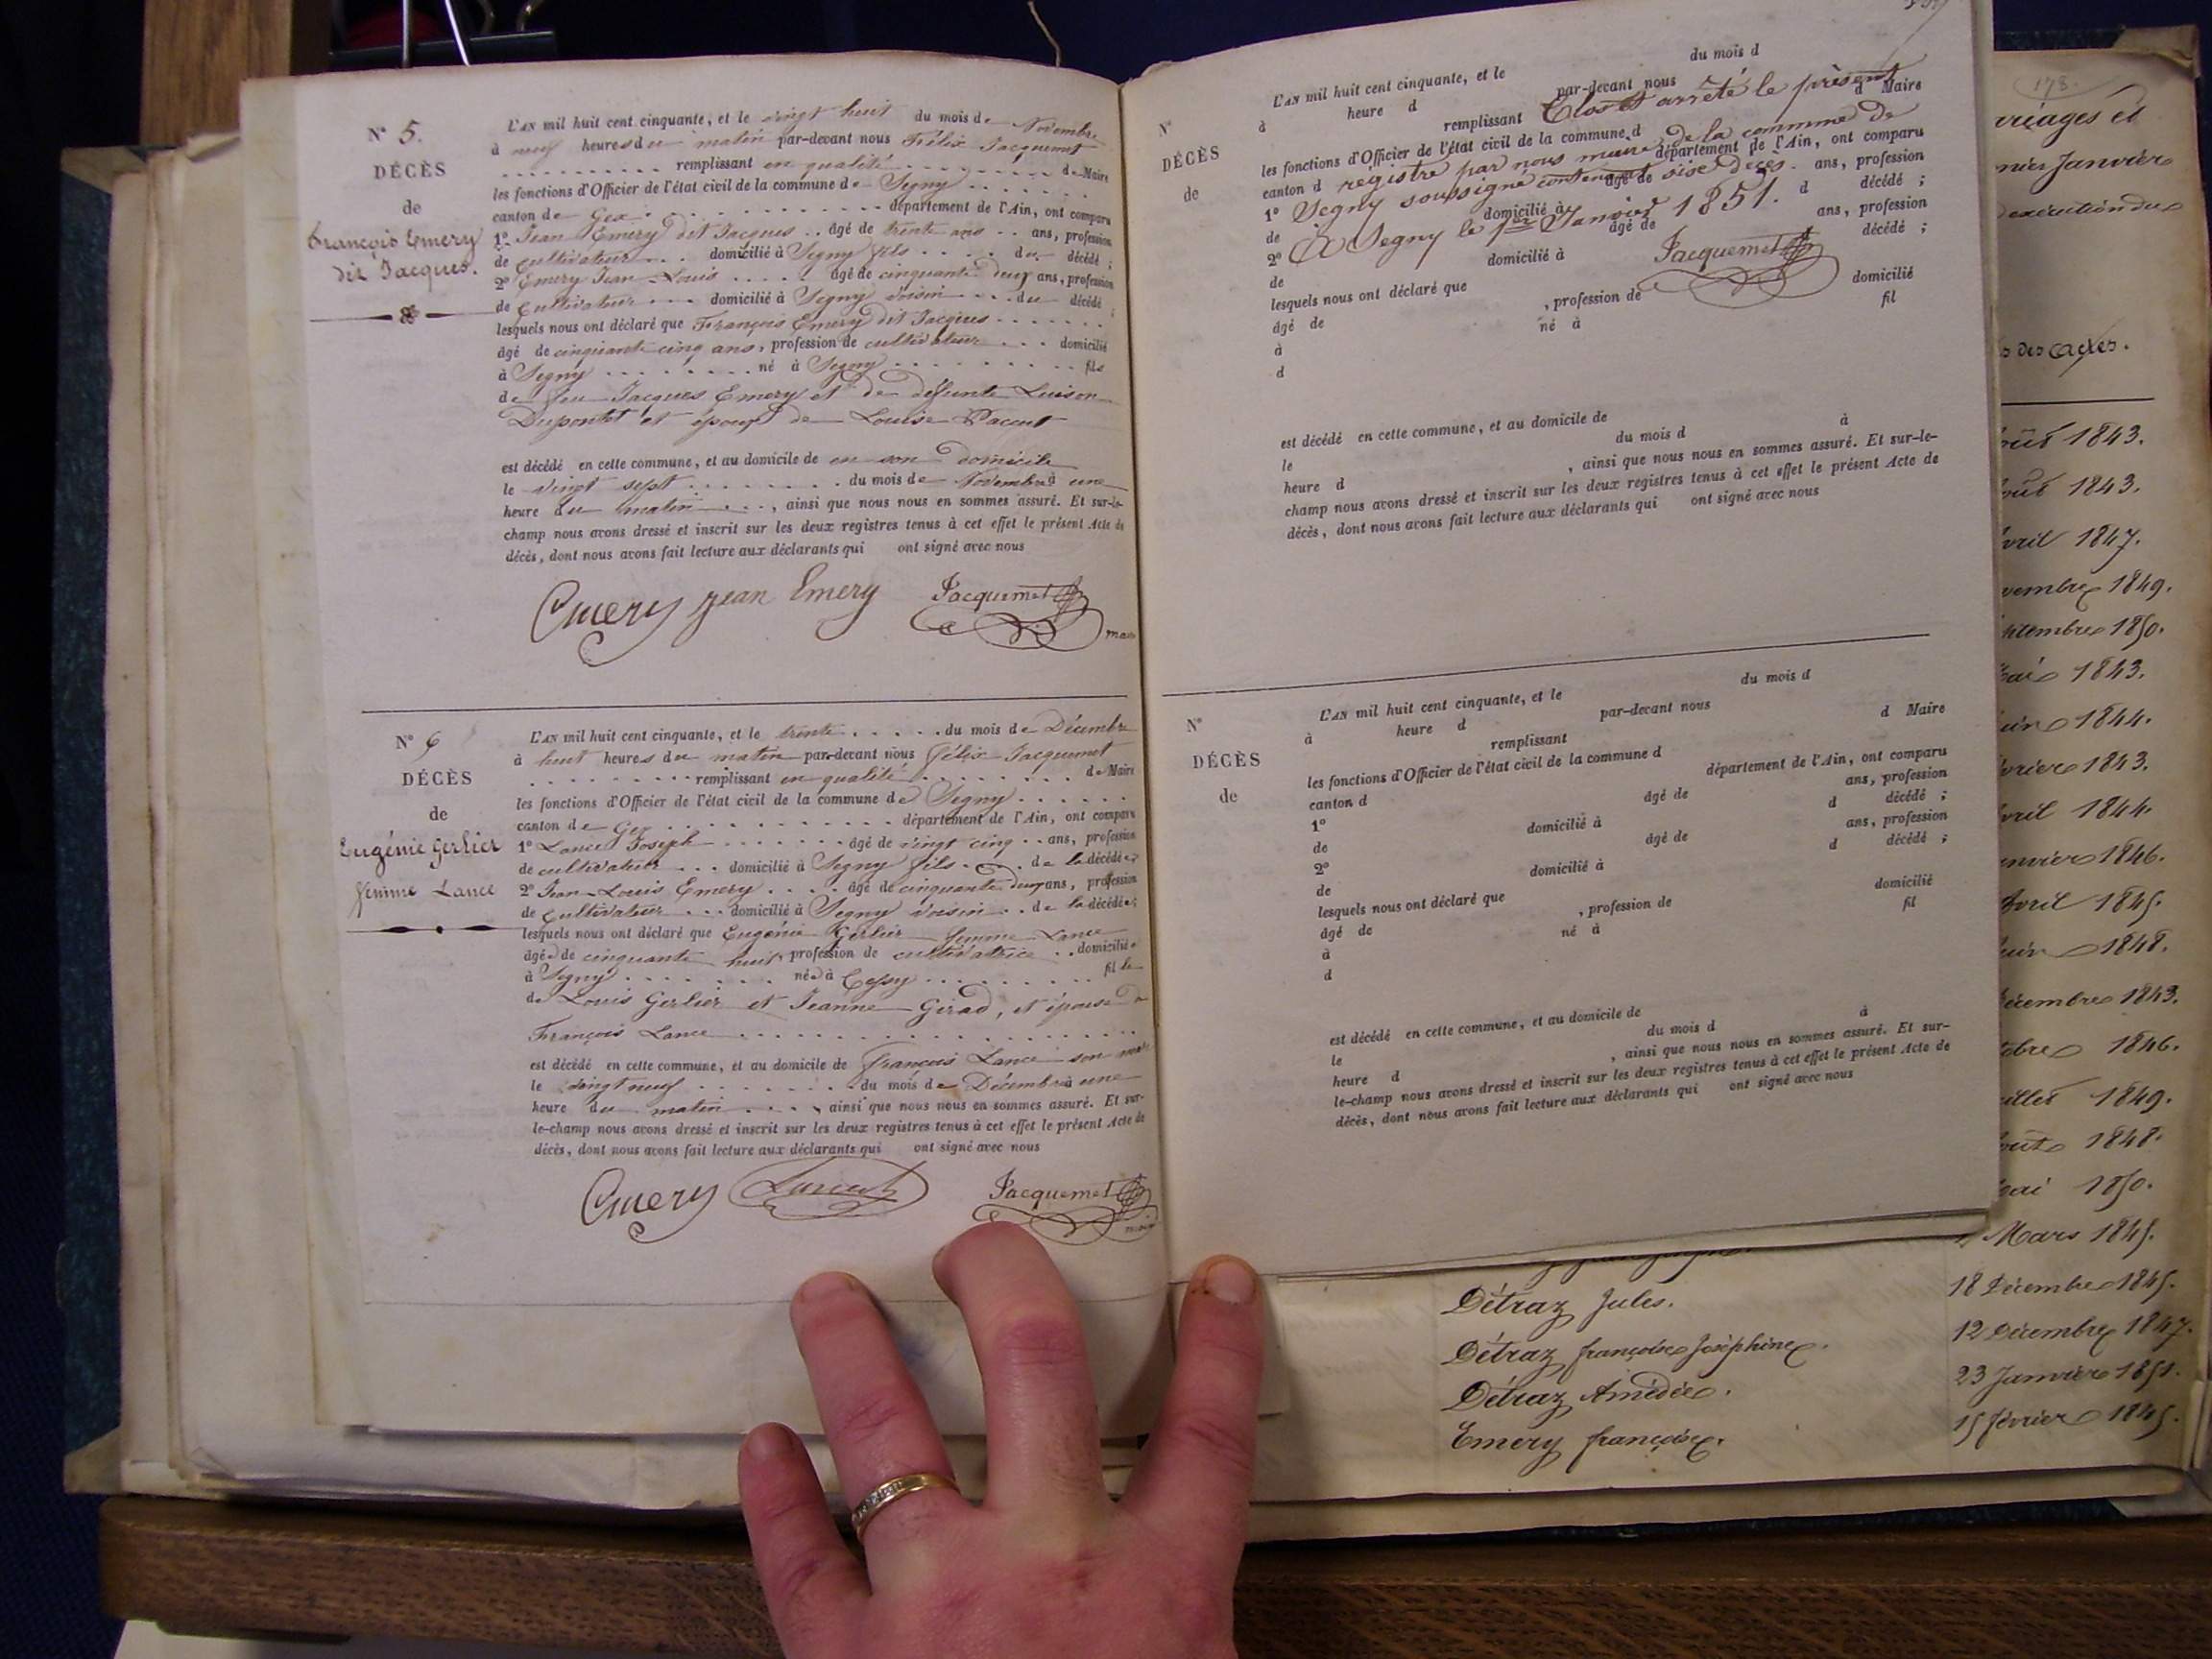 N° 5.
DÉCÈS
de
François Emery
dit Jacques.
L'AN mil huit cent cinquante, et le vingt huit du mois de Novembre
à neuf heures du matin par-devant nous Félix Jacquemet
remplissant en qualité de Maire
les fonctions d'Officier de l'état civil de la commune de Segny
canton de Gex département de l'Ain, ont comparu
1° Jean Emery dit Jacques âgé de trente ans ans, profession
de cultivateur domicilié à Segny fils du décédé ;
2° Emery Jean-Louis âgé de cinquante deux ans, profession
de cultivateur domicilié à Segny voisin du décédé ;
lesquels nous ont déclaré que François Emery dit Jacques
âgé de cinquante cinq ans, profession de cultivateur domicilié
à Segny né à Segny fils
de feu Jacques Emery et de défunte Luison
Dupontet et époux de Louise Pacent
est décédé en cette commune, et au domicile de en son domicile
le vingt sept du mois de Novembre à une
heure du matin, ainsi que nous nous en sommes assuré. Et sur-le-
champ nous avons dressé et inscrit sur les deux registres tenus à cet effet le présent Acte de
décès, dont nous avons fait lecture aux déclarants qui ont signé avec nous
Emery jean Emery Jacquemet
N° 6
DÉCÈS
de
Eugénie Gerlier
femme Lance
L'AN mil huit cent cinquante, et le trente du mois de Décembre
à huit heures du matin par-devant nous Félix Jacquemet
remplissant en qualité de Maire
les fonctions d'Officier de l'état civil de la commune de Segny
canton de Gex département de l'Ain, ont comparu
1° Lance Joseph âgé de vingt cinq ans, profession
de cultivateur domicilié à Segny fils de la décédée
2° Jean-Louis Emery âgé de cinquante deux ans, profession
de cultivateur domicilié à Segny voisin de la décédée ;
lesquels nous ont déclaré que Eugénie Gerlier femme Lance
âgée de cinquante huit profession de cultivatrice domiciliée
à Segny née à Cessy fille
de Louis Gerlier et Jeanne Girad, et épouse de
François Lance
est décédé en cette commune, et au domicile de François Lance son mari
le vingt neuf du mois de Décembre à une
heure du matin, ainsi que nous nous en sommes assuré. Et sur-
le-champ nous avons dressé et inscrit sur les deux registres tenus à cet effet le présent Acte de
décès, dont nous avons fait lecture aux déclarants qui ont signé avec nous
Emery Jacquemet
N°
DÉCÈS
de
L'AN mil huit cent cinquante, et le du mois d
à heure d par-devant nous
remplissant d Maire
les fonctions d'Officier de l'état civil de la commune d
canton d département de l'Ain, ont comparu
1° âgé de ans, profession
de domicilié à d décédé ;
2° âgé de ans, profession
de domicilié à décédé ;
lesquels nous ont déclaré que
âgé de , profession de domicilié
à né à fil
d
Clos et arrêté le présent
registre par nous maire de la commune de
Segny soussigné contenant sise décès.
À Segny le 1er Janvier 1851.
Jacquemet
est décédé en cette commune, et au domicile de
le du mois d à
heure d , ainsi que nous nous en sommes assuré. Et sur-le-
champ nous avons dressé et inscrit sur les deux registres tenus à cet effet le présent Acte de
décès, dont nous avons fait lecture aux déclarants qui ont signé avec nous
N°
DÉCÈS
de
L'AN mil huit cent cinquante, et le du mois d
à heure d par-devant nous
remplissant d Maire
les fonctions d'Officier de l'état civil de la commune d
canton d département de l'Ain, ont comparu
1° âgé de ans, profession
de domicilié à d décédé ;
2° âgé de ans, profession
de domicilié à d décédé ;
lesquels nous ont déclaré que
âgé de , profession de domicilié
à né à fil
d
est décédé en cette commune, et au domicile de
le du mois d à
heure d , ainsi que nous nous en sommes assuré. Et sur-
le-champ nous avons dressé et inscrit sur les deux registres tenus à cet effet le présent Acte de
décès, dont nous avons fait lecture aux déclarants qui ont signé avec nous
178.
riages et
nier Janvier
exécution du
s des actes.
oût 1843.
oût 1843.
vril 1847.
vembre 1849.
ptembre 1850.
ai 1843.
uin 1844.
vrier 1843.
vril 1844.
anvier 1846.
Avril 1845.
uin 1848.
écembre 1843.
tobre 1846.
uillet 1849.
oût 1848.
ai 1850.
Mars 1845.
Détraz Jules. 18 Décembre 1845.
Détraz françoise Joséphine. 12 Décembre 1847.
Détraz Amédée. 23 Janvier 1851.
Emery françoise. 15 février 1845.